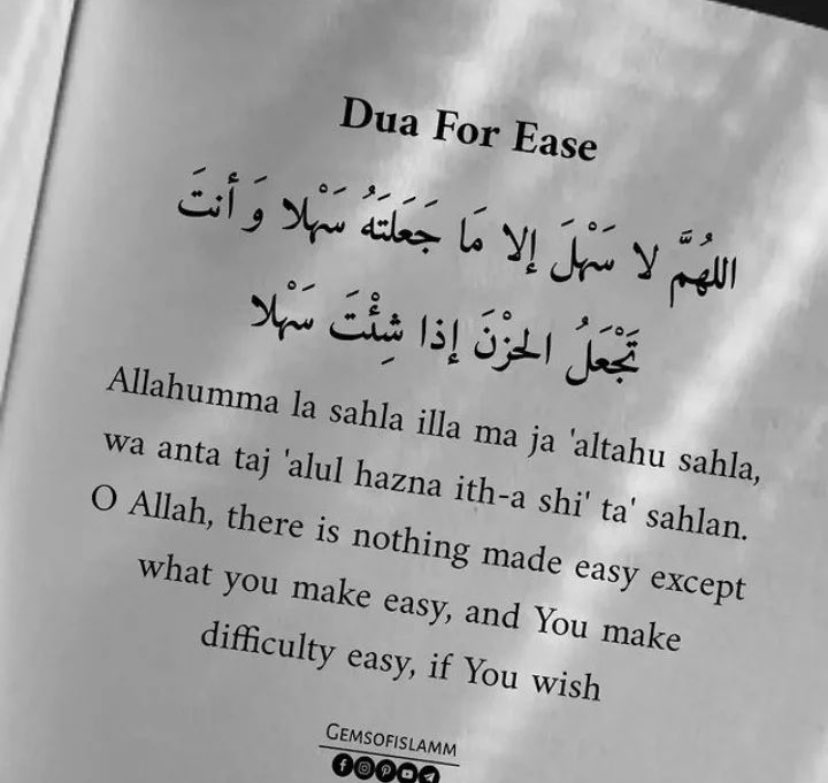 Dua For Ease
اللهُمَّ لا سَهْلَ إلا مَا جَعَلتَهُ سَهْلا وَ أنتَ
تَجْعَلُ الحَزْنَ إذا شِئْتَ سَهْلا
Allahumma la sahla illa ma ja 'altahu sahla,
wa anta taj 'alul hazna ith-a shi' ta' sahlan.
O Allah, there is nothing made easy except
what you make easy, and You make
difficulty easy, if You wish
GEMSOFISLAMM